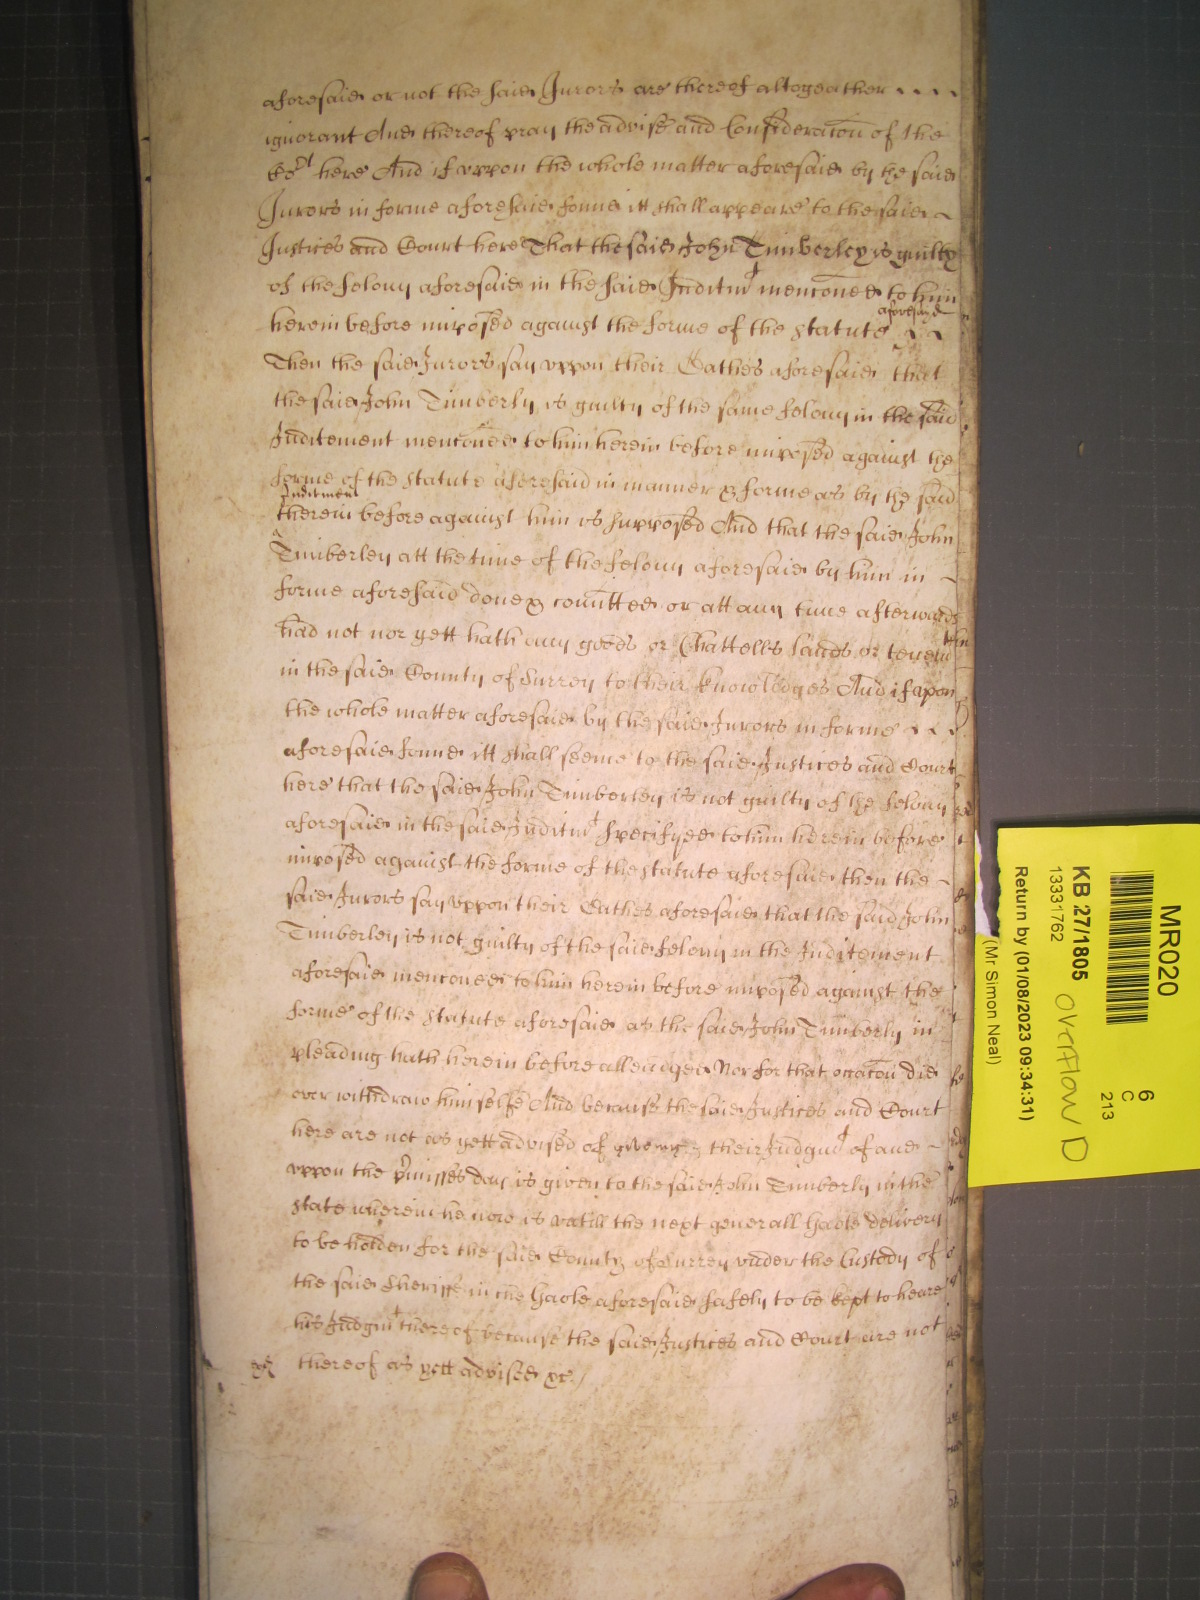 aforesaid or not the said Jurors are thereof altogeather
ignorant And thereof pray the advise and Consideracon of the
Cort here And if vppon the whole matter aforesaid by the said
Jurors in forme aforesaid found itt shall appeare to the said
Justices and Court here That the said John Timberley is guilty
of the felony aforesaid in the said Inditmt menconed to him
aforesayd
herein before imposed against the forme of the statute
Then the said Jurors say vppon their Oathes aforesaid that
the said John Timberly is guilty of the same felony in the said
Inditement menconed to him herein before imposed against the
forme of the statute aforesaid in manner & forme as by the said
Inditment
therein before against him is supposed And that the said John
Timberley att the time of the felony aforesaid by him in
forme aforesaid done & comitted or att any time afterwards
had not nor yett hath any goods or Chattells lands or tenem
in the said County of Surrey to their knowledges And if vpon
the whole matter aforesaid by the said Jurors in forme
aforesaid found itt shall seeme to the said Justices and Court
here that the said John Timberley is not guilty of the felony
aforesaid in the said Inditmt specifyed to him herein before
imposed against the forme of the statute aforesaid then the
said Jurors say vppon their Oathes aforesaid that the said John
Timberley is not guilty of the said felony in the Inditement
aforesaid menconed to him herein before imposed against the
forme of the statute aforesaid as the said John Timberly in
pleading hath herein before alleadged Nor for that occacon did
ever withdraw himselfe And because the said Justices and Court
here are not as yett advised of giveing their Judgmt of and
vppon the pmisses day is given to the said John Timberly in the
state wherein he now is vntill the next generall Gaole delivery
to be holden for the said County of Surrey vnder the Custody of
the said Sheriffe in the Gaole aforesaid safely to be kept to heare
his Judgmt thereof because the said Justices and Court are not
thereof as yett advised &c
MR020
KB 27/1805
13331762
Return by (01/08/2023 09:34:31)
(Mr Simon Neal)
6
C
213
Overflow D